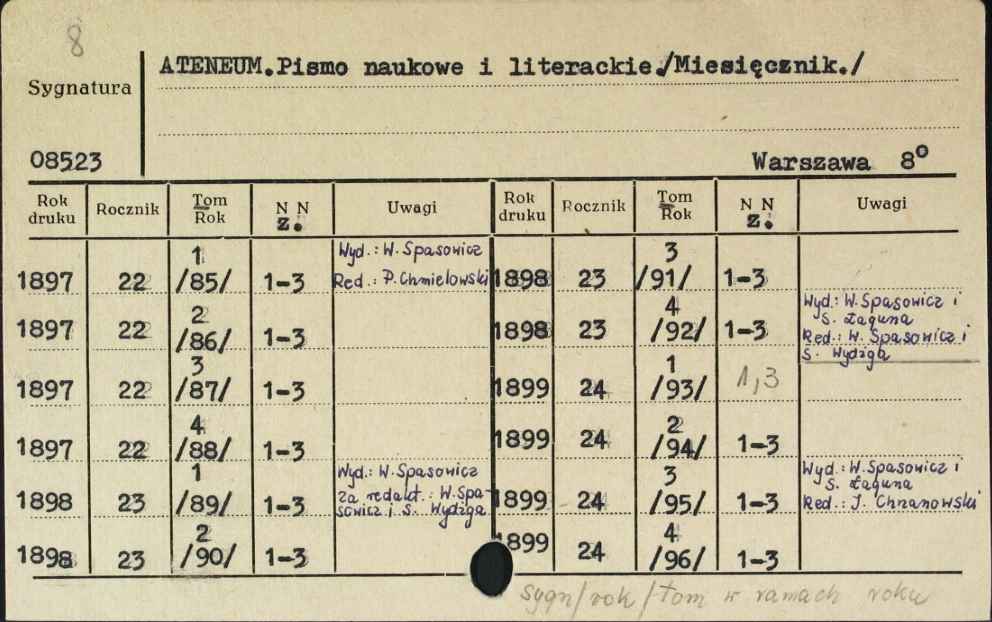 8
ATENEUM.Pismo naukowe i literackie./Miesięcznik./
Sygnatura
08523
Warszawa 8°
Rok druku Rocznik Tom Rok N N z. Uwagi Rok druku Rocznik Tom Rok N N z. Uwagi
1897 22 1 /85/ 1-3 Wyd.: W. Spasowicz Red.: P. Chmielowski 1898 23 3 /91/ 1-3
1897 22 2 /86/ 1-3 1898 23 4 /92/ 1-3 Wyd.: W. Spasowicz i S. Łaguna Red.: W. Spasowicz i S. Wydżga
1897 22 3 /87/ 1-3 1899 24 1 /93/ 1,3
1897 22 4 /88/ 1-3 1899 24 2 /94/ 1-3
1898 23 1 /89/ 1-3 Wyd.: W. Spasowicz za redakt.: W. Spasowicz i S. Wydżga 1899 24 3 /95/ 1-3 Wyd.: W. Spasowicz i S. Łaguna Red.: J. Chrzanowski
1898 23 2 /90/ 1-3 1899 24 4 /96/ 1-3
sygn/rok/tom w ramach roku